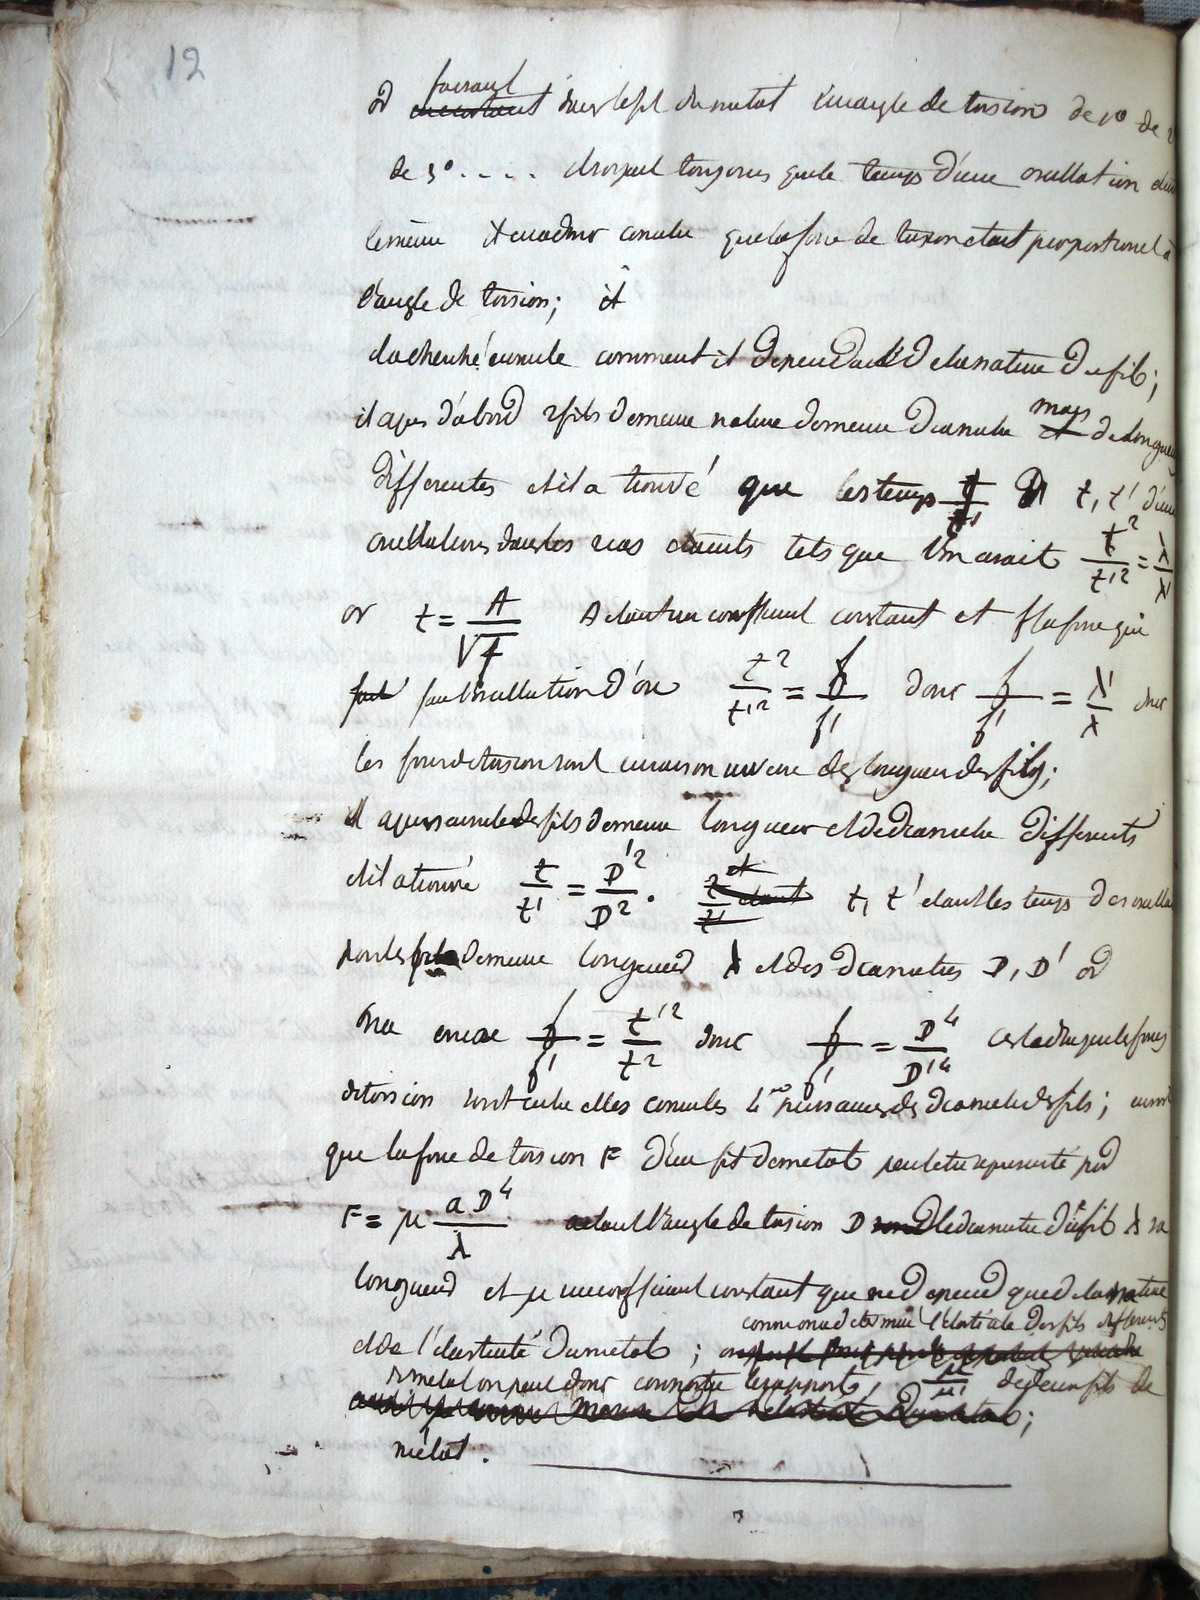 12
faisant
et dans le fil du metal l'angle de torsion de 1° de 2
de 3° . . . . toujours que le temps d'une oscillation
le même que la force de torsion etait proportionel à
l'angle de torsion; il
a cherché ensuite comment il dependait de la nature du fil;
il a pris d'abord 2 fils de meme nature de meme diametre mais de longueurs
differentes et il a trouvé que les temps t, t' d'une
oscillations dans les 2 cas etaients tels que l'on avait t²/t'² = λ/λ'
or t = A/√f A etant un coefficient constant et f la force qui
fait l'oscillation d'où t²/t'² = f/f' donc f/f' = λ'/λ donc
les forces de torsion sont en raison inverse des longueurs des fils;
Il a pris ensuite des fils de meme longueur et de diametre differents
et il a trouvé t/t' = D'²/D². t, t' etant les temps des oscilla
pour les fils de meme longueur λ et des diametres D, D' or
on a encore f/f' = t'²/t² donc f/f' = D⁴/D'⁴ c'est a dire que les forces
de torsion sont entre elles comme les 4es puissances des diametre des fils; ensorte
que la force de torsion F d'un fil de metal peut etre representé par
F = μ a D⁴/λ a etant l'angle de torsion D le diametre du fil λ sa
longueur et μ un coefficient constant qui ne depend que de la nature
et de l'elasticité du metal ; comme on determine l'elasticité des fils differents
de metal on peut donc connoitre les rapports μ/μ' de deux fils de
métal.